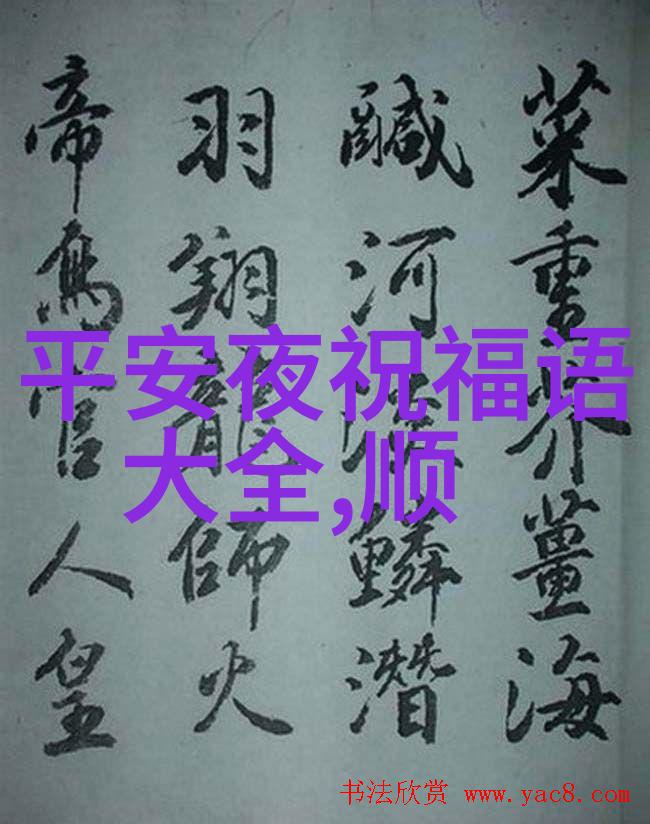 菜重芥薑海
鹹河淡鱗潛
羽翔龍師火
帝鳥官人皇
平安夜祝福语
大全,顺
书法欣赏 www.yac8.com